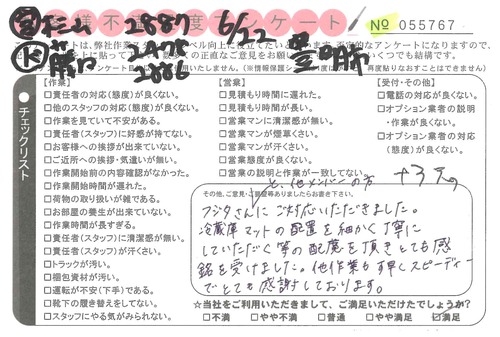 お客様不満足度アンケート
№ 055767
営 杉山 2887 6/22 豊明市
チェックリスト
【作業】
□責任者の対応(態度)が良くない。
□他のスタッフの対応(態度)が良くない。
□作業を見ていて不安がある。
□責任者(スタッフ)に好感が持てない。
□お客様への挨拶が出来ていない。
□ご近所への挨拶・気遣いが無い。
□作業開始前の内容確認がなかった。
□作業開始時間が遅れた。
□荷物の取り扱いが雑である。
□お部屋の養生が出来ていない。
□作業時間が長すぎる。
□責任者(スタッフ)に清潔感が無い。
□責任者(スタッフ)が汗くさい。
□トラックが汚い。
□梱包資材が汚い。
□運転が不安(下手)である。
□靴下の履き替えをしてない。
□スタッフにやる気がみられない。
【営業】
□見積もり時間に遅れた。
□見積もり時間が長い。
□営業マンに清潔感が無い。
□営業マンが煙草くさい。
□営業マンが汗くさい。
□営業態度が良くない。
□営業の説明と作業が一致してない。
【受付・その他】
□電話の対応が良くない。
□オプション業者の説明
・作業が良くない。
□オプション業者の対応
(態度)が良くない。
その他、ご意見・ご要望等ありましたらお書き下さい。
と、他メンバーの方
フジタさんにご対応いただきました。
冷蔵庫マットの配置を細かく丁寧に
していただく等の配慮を頂きとても感
銘を受けました。他作業も手早くスピーディー
でとても感謝しております。
☆当社をご利用いただきまして、ご満足いただけたでしょうか?
□不満 □やや不満 □普通 □やや満足 ☑満足